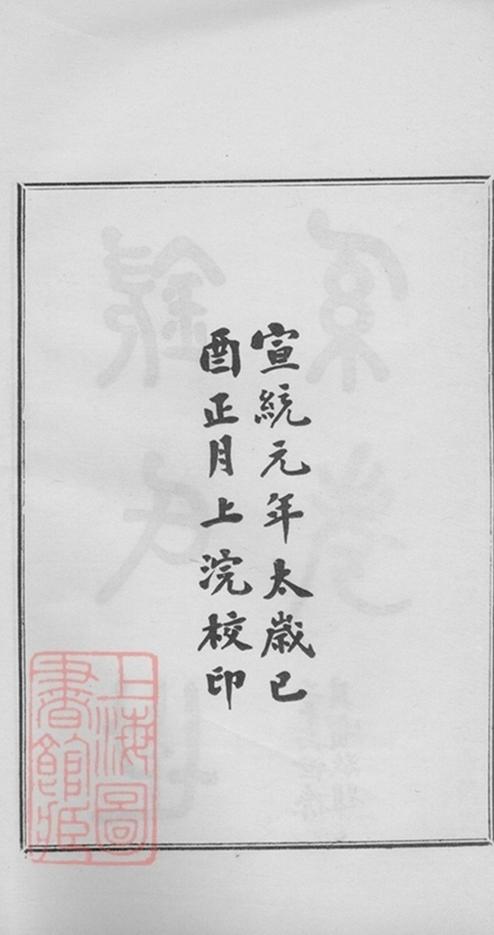 宣統元年太歲己
酉正月上浣校印
上海圖
書館藏